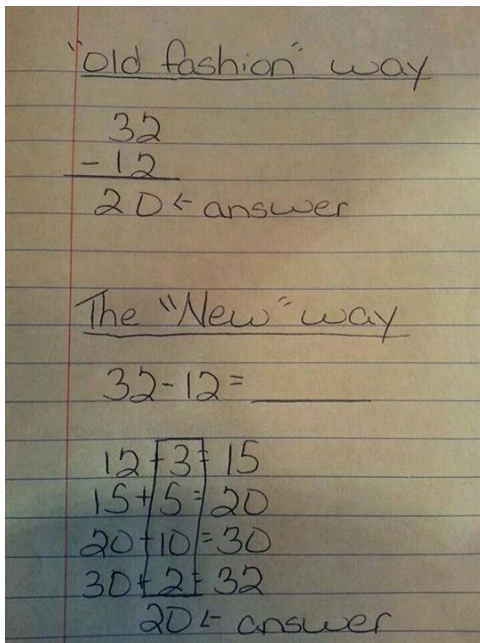 "Old fashion" way
32
- 12
20 ← answer
The "New" way
32-12=______
12+3=15
15+5=20
20+10=30
30+2=32
20 ← answer